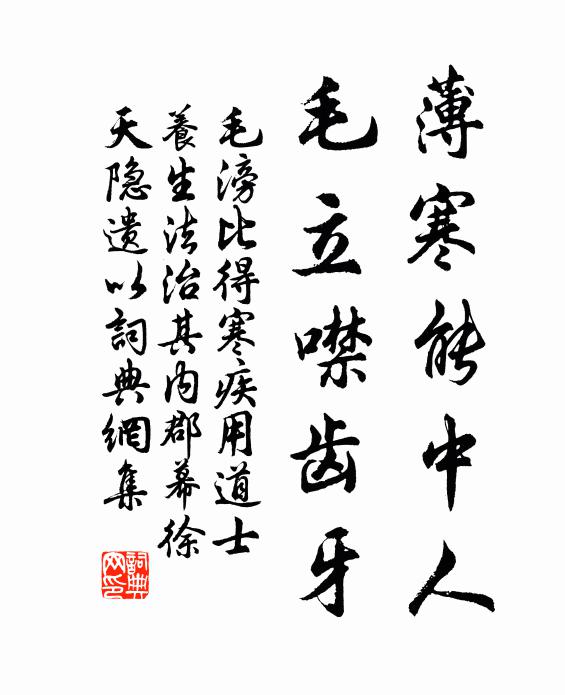 薄寒能中人
毛立噤齿牙
毛滂比得寒疾用道士
養生法治其内郡幕徐
天隐遗以詞典網集
詞典网印